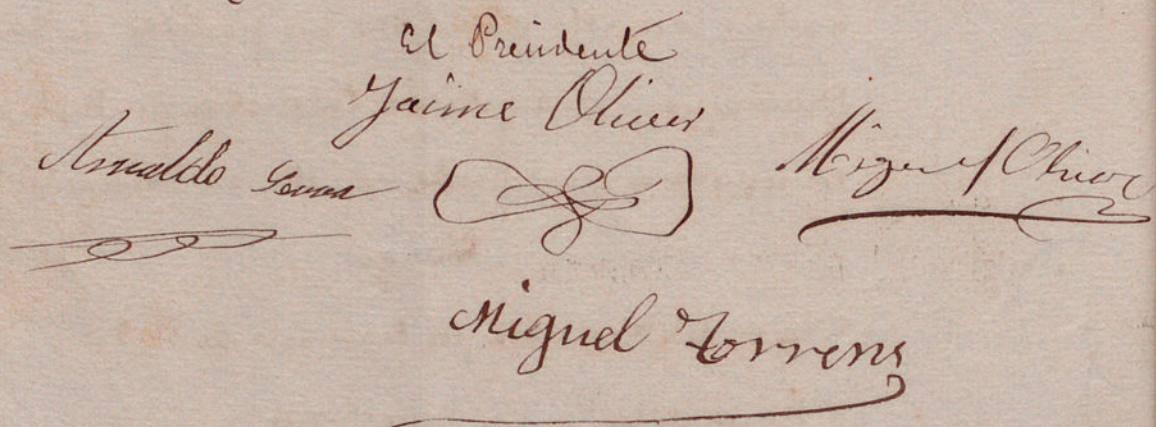 El Presidente
Jaime Oliver
Arnaldo Serra
Miguel Oliver
Miguel Torrens